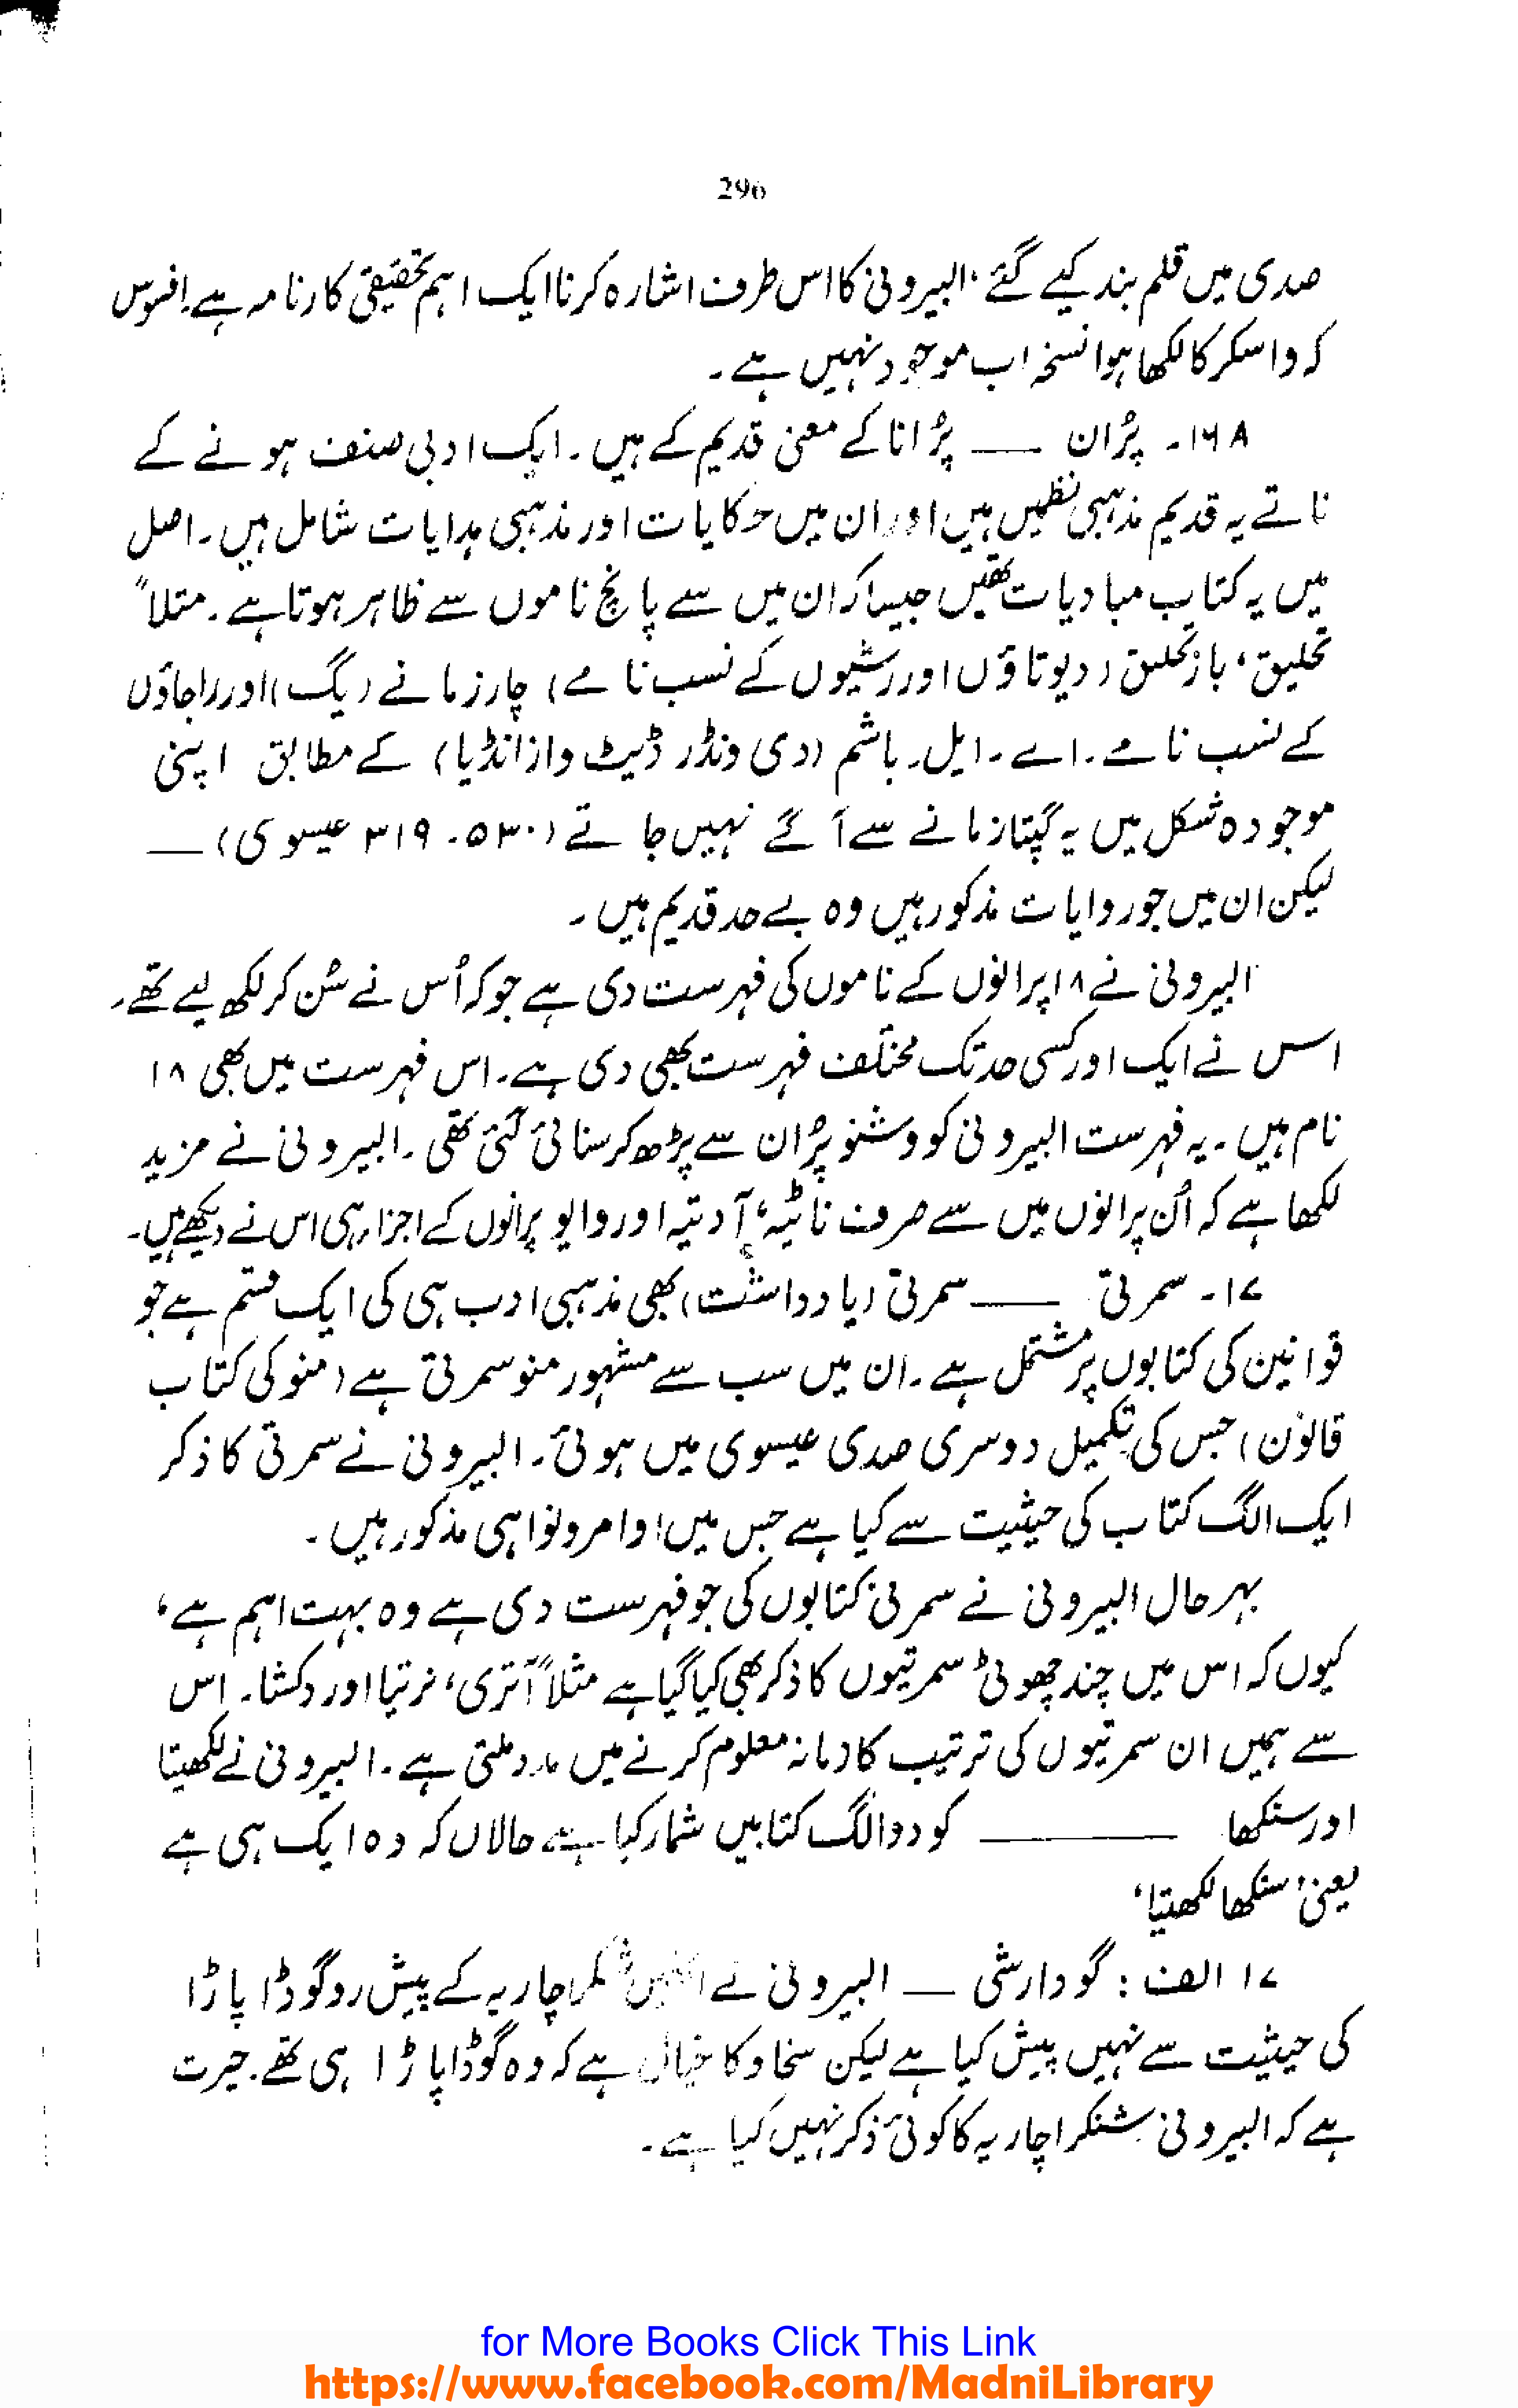 296
صدی میں قلم بند کیے گئے، البیرونی کا اس طرف اشارہ کرنا ایک اہم تحقیقی کارنامہ ہے۔ افسوس
کہ واسکر کا لکھا ہوا نسخہ اب موجود نہیں ہے۔
۱۶۸۔ پُران — پُرانا کے معنی قدیم کے ہیں۔ ایک ادبی صنف ہونے کے
ناتے یہ قدیم مذہبی نظمیں ہیں اور ان میں حکایات اور مذہبی ہدایات شامل ہیں۔ اصل
میں یہ کتاب مبادیات تھیں جیسا کہ ان میں سے پانچ ناموں سے ظاہر ہوتا ہے۔ مثلاً
تخلیق، باز تخلیق (دیوتاؤں اور رشیوں کے نسب نامے) چار زمانے (یگ) اور راجاؤں
کے نسب نامے۔ اے۔ ایل۔ باشم (دی ونڈر ڈیٹ واز انڈیا) کے مطابق اپنی
موجودہ شکل میں یہ گپتا زمانے سے آگے نہیں جاتے (۵۳۰۔ ۳۱۹ عیسوی) —
لیکن ان میں جو روایات مذکور ہیں وہ بے حد قدیم ہیں۔
البیرونی نے ۱۸ پرانوں کے ناموں کی فہرست دی ہے جو کہ اُس نے سُن کر لکھ لیے تھے۔
اس نے ایک اور کسی حد تک مختلف فہرست بھی دی ہے۔ اس فہرست میں بھی ۱۸
نام ہیں۔ یہ فہرست البیرونی کو وشنو پُران سے پڑھ کر سنائی گئی تھی۔ البیرونی نے مزید
لکھا ہے کہ اُن پرانوں میں سے صرف ناٹیہ، آدتیہ اور وایو پرانوں کے اجزا ہی اس نے دیکھے ہیں۔
۱۷۔ سمرتی — سمرتی (یادداشت) بھی مذہبی ادب ہی کی ایک قسم ہے جو
قوانین کی کتابوں پر مشتمل ہے۔ ان میں سب سے مشہور منو سمرتی ہے (منو کی کتاب
قانون) جس کی تکمیل دوسری صدی عیسوی میں ہوئی۔ البیرونی نے سمرتی کا ذکر
ایک الگ کتاب کی حیثیت سے کیا ہے جس میں اوامر و نواہی مذکور ہیں۔
بہر حال البیرونی نے سمرتی کتابوں کی جو فہرست دی ہے وہ بہت اہم ہے،
کیوں کہ اس میں چند چھوٹی سمرتیوں کا ذکر بھی کیا گیا ہے مثلاً آتری، نرتیا اور دکشا۔ اس
سے ہمیں ان سمرتیوں کی ترتیب کا زمانہ معلوم کرنے میں مدد ملتی ہے۔ البیرونی نے لکھیتا
اور سنکھا — کو دو الگ کتابیں شمار کیا ہے حالاں کہ وہ ایک ہی ہے
یعنی 'سنکھا لکھتیا'
۱۷ الف : گودارشی — البیرونی نے اچاریہ کے پیش رو گوڈا پاڑا
کی حیثیت سے نہیں پیش کیا ہے لیکن سخاو کا خیال ہے کہ وہ گوڈا پاڑا ہی تھے۔ حیرت
ہے کہ البیرونی شنکر اچاریہ کا کوئی ذکر نہیں کیا ہے۔
for More Books Click This Link
https://www.facebook.com/MadniLibrary